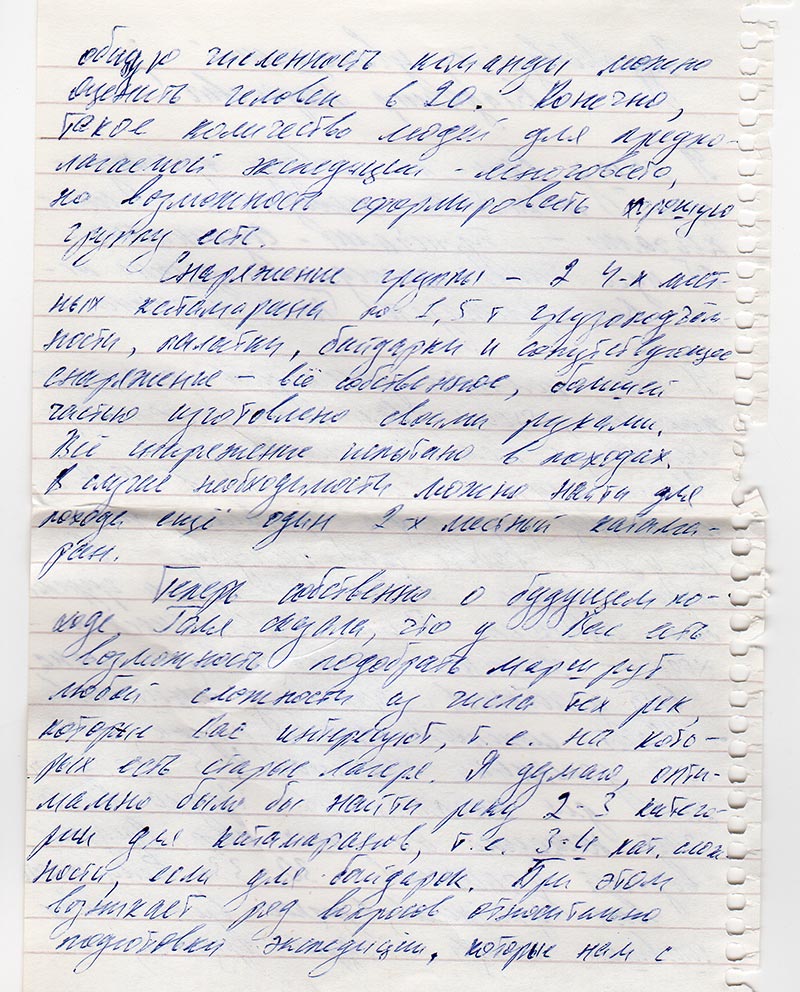 общую численность команды можно
оценить человек в 20. Конечно,
такое количество людей для предпо-
лагаемой экспедиции - многовато,
но возможность сформировать хорошую
группу есть.
Снаряжение группы - 2 4-х мест-
ных катамарана по 1,5 т грузоподъём-
ности, палатки, байдарки и сопутствующее
снаряжение - всё собственное, большей
частью изготовлено своими руками.
Всё снаряжение испытано в походах.
В случае необходимости можно найти для
похода ещё один 2-х местный катама-
ран.
Теперь собственно о будущем по-
ходе. Галя сказала, что у Вас есть
возможность подобрать маршрут
любой сложности из числа тех рек,
которые Вас интересуют, т.е. на кото-
рых есть старые лагеря. Я думаю, опти-
мально было бы найти реку 2-3 катего-
рии для катамаранов, т.е. 3-4 кат. слож-
ности, если для байдарок. При этом
возникает ряд вопросов относительно
подготовки экспедиции, которые нам с